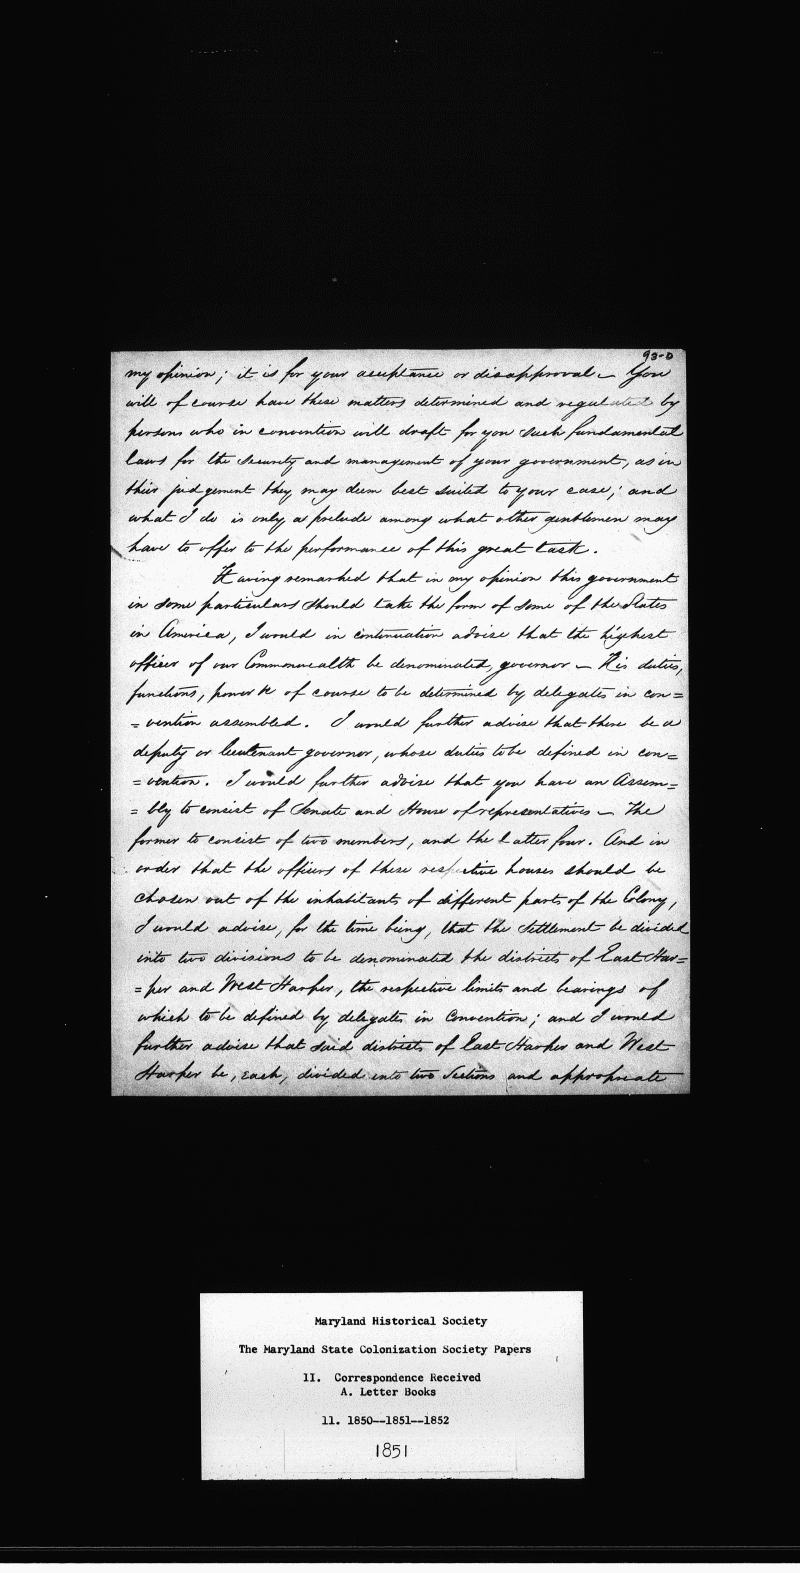 93-D
my opinion; it is for your acceptance or disapproval — You
will of course have these matters determined and regulated by
persons who in convention will draft for you such fundamental
laws for the security and management of your government, as in
their judgement they may deem best suited to your case; and
what I do is only a prelude among what other gentlemen may
have to offer to the performance of this great task.
Having remarked that in my opinion this government
in some particulars should take the form of some of the States
in America, I would in continuation advise that the highest
officer of our Commonwealth be denominated, governor — His duties,
functions, power &c of course to be determined by delegates in con=
=vention assembled. I would further advise that there be a
deputy or lieutenant governor, whose duties to be defined in con=
=vention. I would further advise that you have an Assem=
=bly to consist of Senate and House of representatives — The
former to consist of two members, and the latter four. And in
order that the officers of these respective houses should be
chosen out of the inhabitants of different parts of the Colony,
I would advise, for the time being, that the Settlement be divided
into two divisions to be denominated the districts of East Har=
=per and West Harper, the respective limits and bearings of
which to be defined by delegates in Convention; and I would
further advise that said districts of East Harper and West
Harper be, each, divided into two Sections and appropriate
Maryland Historical Society
The Maryland State Colonization Society Papers
II. Correspondence Received
A. Letter Books
11. 1850--1851--1852
1851